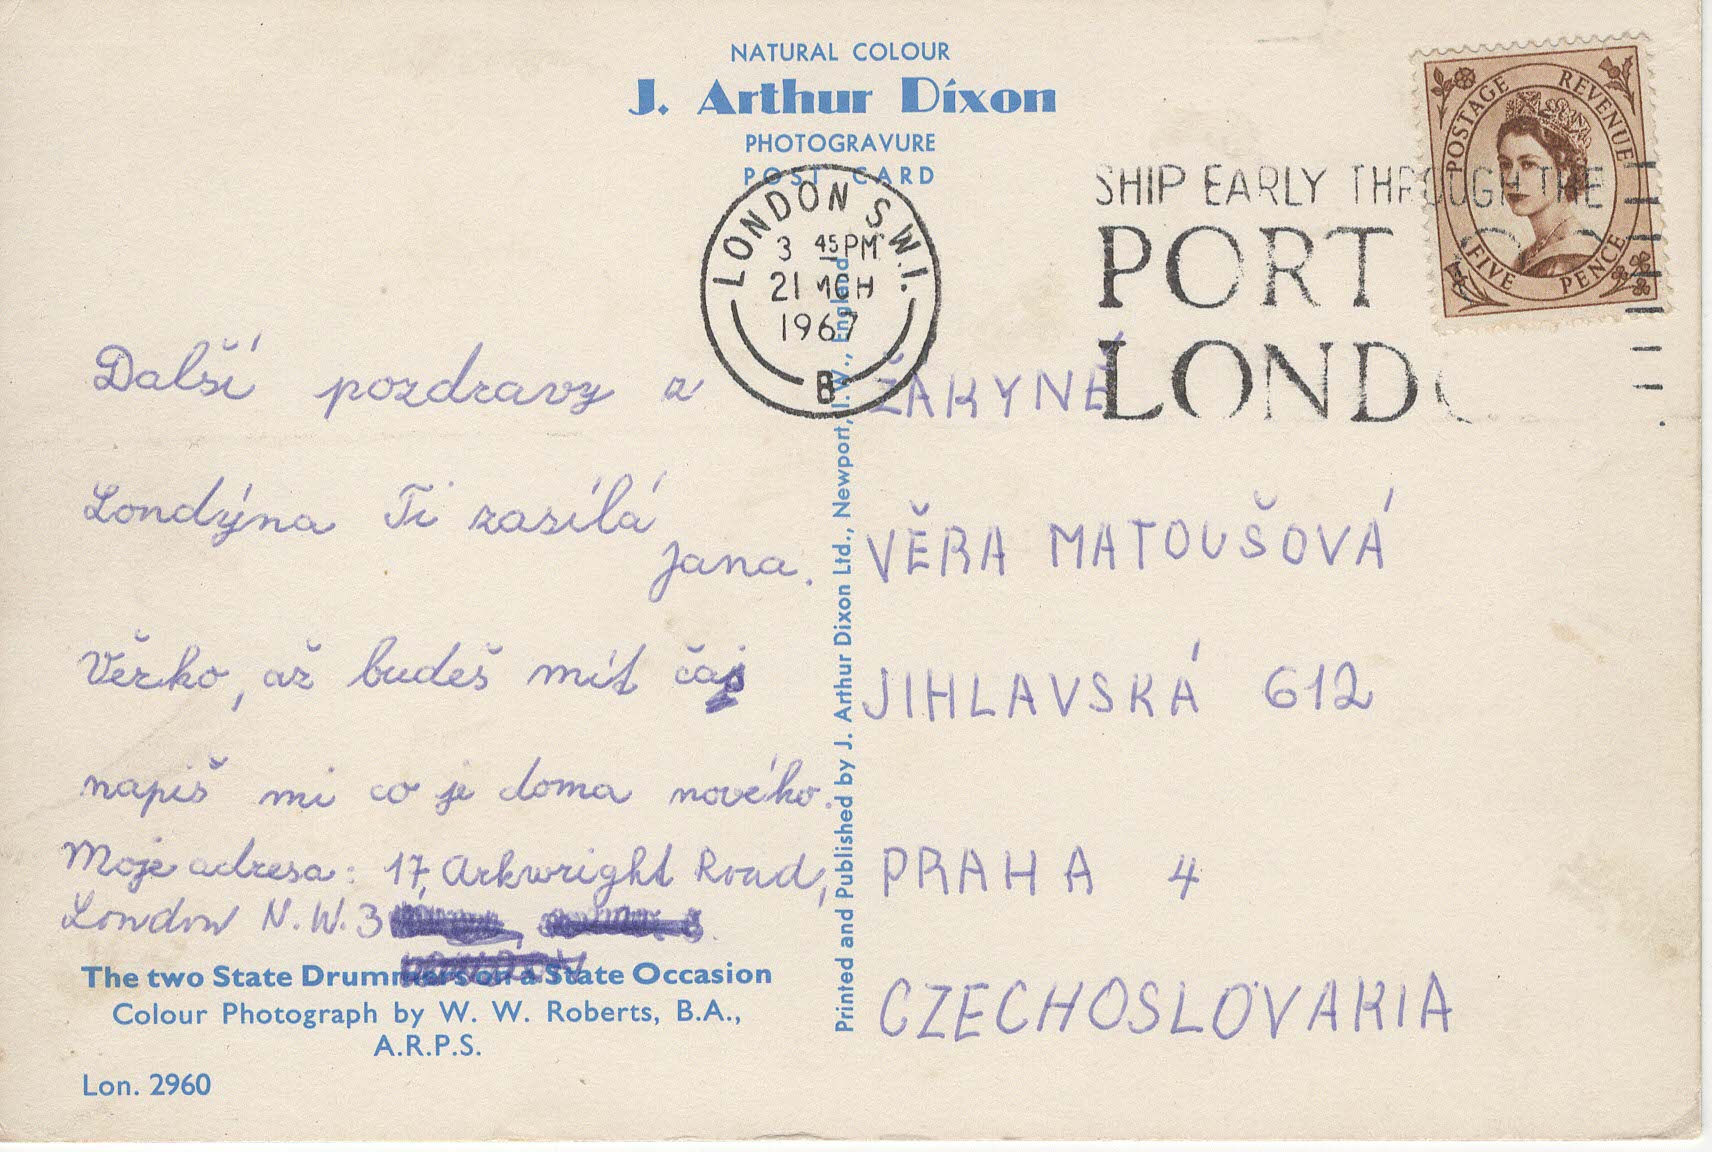 NATURAL COLOUR
J. Arthur Dixon
PHOTOGRAVURE
POST CARD
LONDON S.W.1.
3 45 PM
21 MCH
1967
B
SHIP EARLY THROUGH THE
PORT
LONDO
POSTAGE REVENUE
FIVE PENCE
Další pozdravy z
Londýna Ti zasílá
Jana.
Věrko, až budeš mít čas
napiš mi co je doma nového.
Moje adresa: 17, Arkwright Road,
London N.W.3
The two State Drummers on a State Occasion
Colour Photograph by W. W. Roberts, B.A.,
A.R.P.S.
Lon. 2960
Printed and Published by J. Arthur Dixon Ltd., Newport, I.W., England
ŽAKYNĚ
VĚRA MATOUŠOVÁ
JIHLAVSKÁ 612
PRAHA 4
CZECHOSLOVAKIA